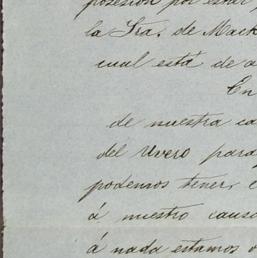 posesion por estar
la Sra. de Mack
cual está de a
En
de nuestra ca
del Uvero para
podemos tener, e
á nuestro causa
á nada estamos o